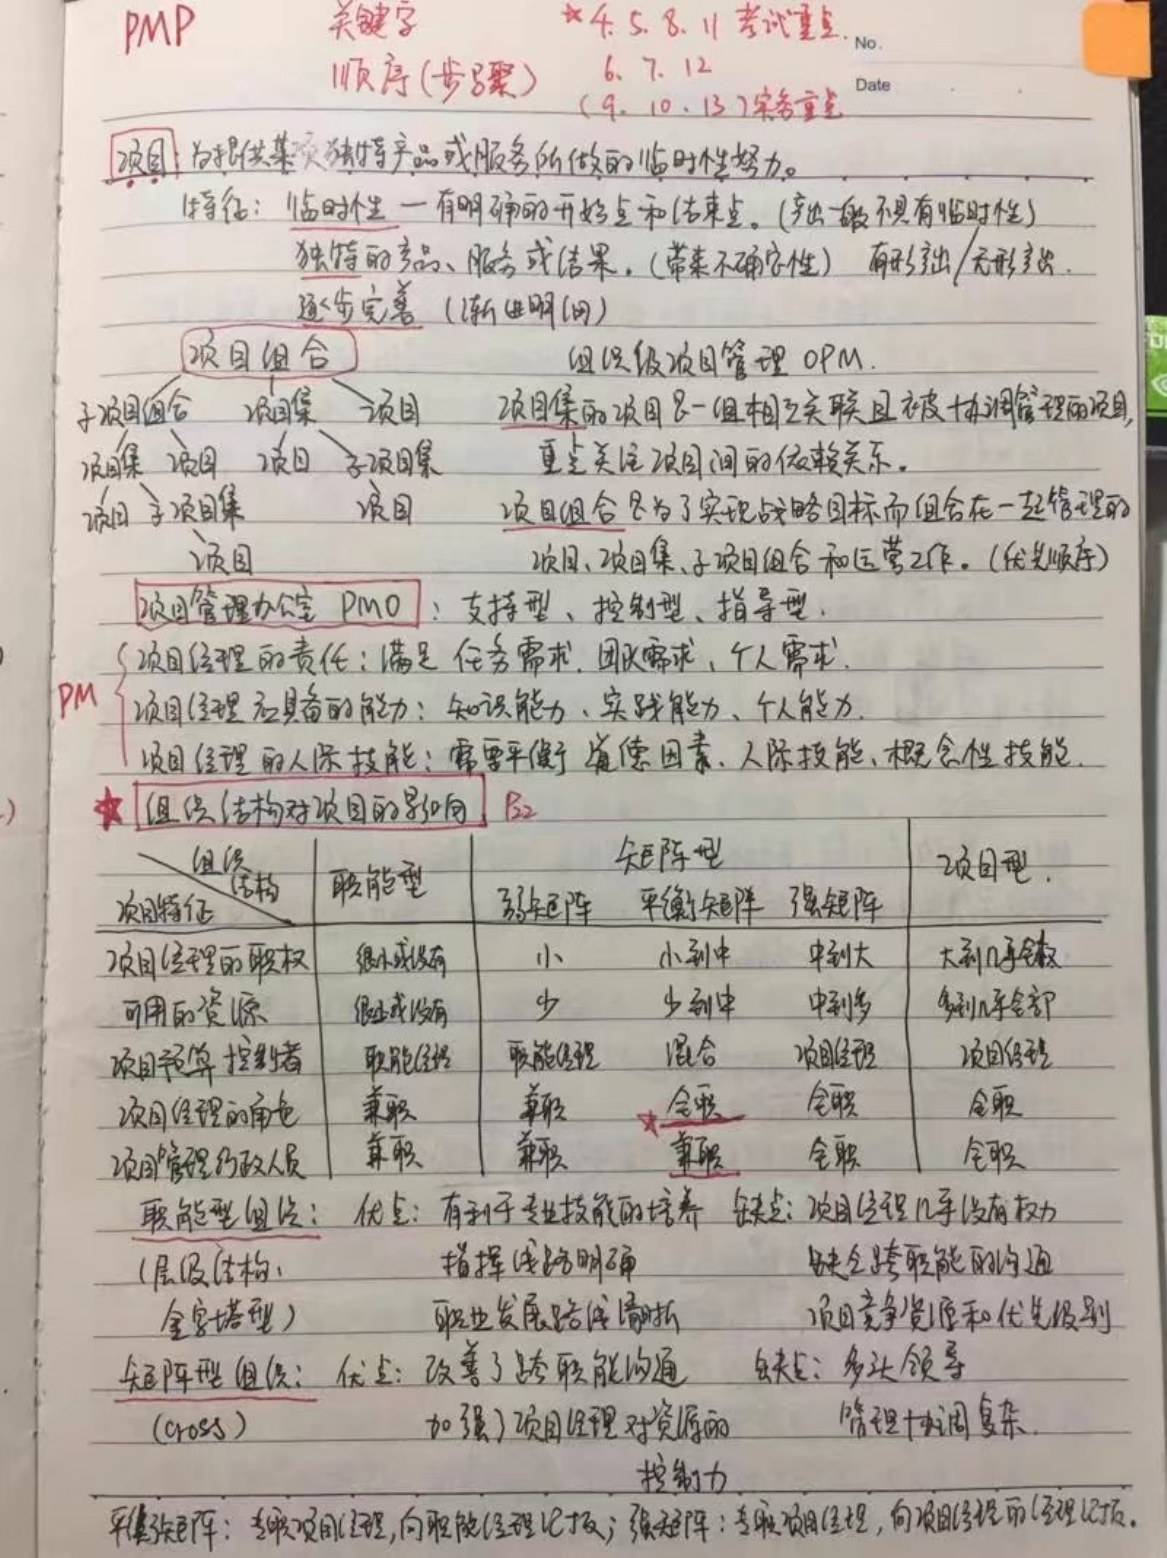 PMP 关键字 ★4.5.8.11 考试重点.
No.
顺序(步骤) 6.7.12
Date
(9.10.13)实务重点
项目:为提供某项独特产品或服务所做的临时性努力。
特征:临时性 — 有明确的开始点和结束点。(产出一般不具有临时性)
独特的产品、服务或结果。(带来不确定性) 有形产出/无形产出.
逐步完善 (渐进明细)
项目组合 组织级项目管理 OPM.
子项目组合 项目集 项目 项目集的项目是一组相互关联且被协调管理的项目,
项目集 项目 项目 子项目集 重点关注项目间的依赖关系。
项目 子项目集 项目 项目组合是为了实现战略目标而组合在一起管理的
项目 项目、项目集、子项目组合和运营工作。(优先顺序)
项目管理办公室 PMO:支持型、控制型、指导型.
项目经理的责任:满足 任务需求.团队需求、个人需求.
PM 项目经理应具备的能力:知识能力、实践能力、个人能力.
项目经理的人际技能:需要平衡 道德因素、人际技能、概念性技能.
★ 组织结构对项目的影响 P22
组织结构 职能型 矩阵型 项目型.
项目特征 弱矩阵 平衡矩阵 强矩阵
项目经理的职权 很小或没有 小 小到中 中到大 大到几乎全权
可用的资源 很少或没有 少 少到中 中到多 多到几乎全部
项目预算控制者 职能经理 职能经理 混合 项目经理 项目经理
项目经理的角色 兼职 兼职 ★全职 全职 全职
项目管理行政人员 兼职 兼职 兼职 全职 全职
职能型组织: 优点:有利于专业技能的培养 缺点:项目经理几乎没有权力
(层级结构、 指挥线路明确 缺乏跨职能的沟通
金字塔型) 职业发展路线清晰 项目竞争资源和优先级别
矩阵型组织: 优点:改善了跨职能沟通 缺点:多头领导
(cross) 加强了项目经理对资源的 管理协调复杂.
控制力
平衡矩阵:专职项目经理,向职能经理汇报;强矩阵:专职项目经理,向项目经理的经理汇报。